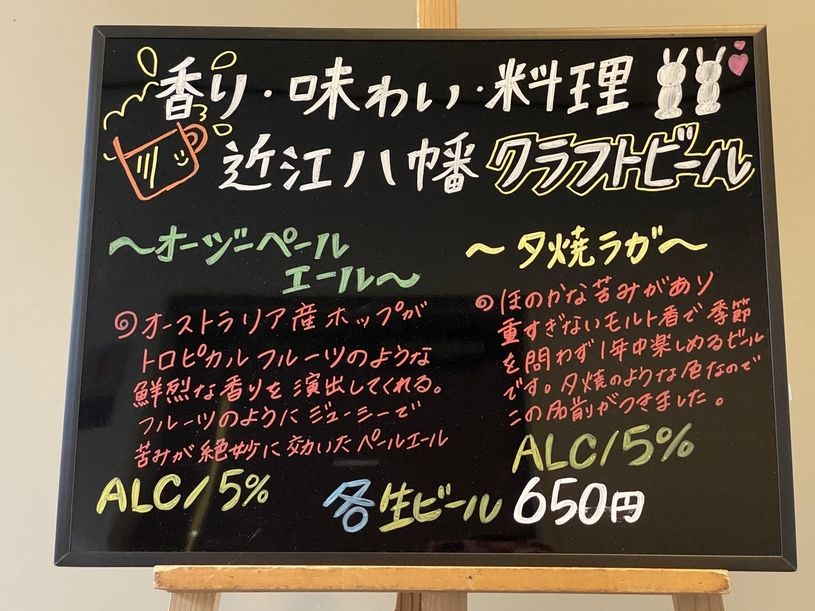 香り・味わい・料理
近江八幡 クラフトビール
〜オージーペール
エール〜
オーストラリア産ホップが
トロピカルフルーツのような
鮮烈な香りを演出してくれる。
フルーツのようにジューシーで
苦みが絶妙に効いたペールエール
ALC/5%
〜夕焼ラガ〜
ほのかな苦みがあり
重すぎないモルト香で季節
を問わず1年中楽しめるビール
です。夕焼のような色なので
この名前がつきました。
ALC/5%
各生ビール 650円